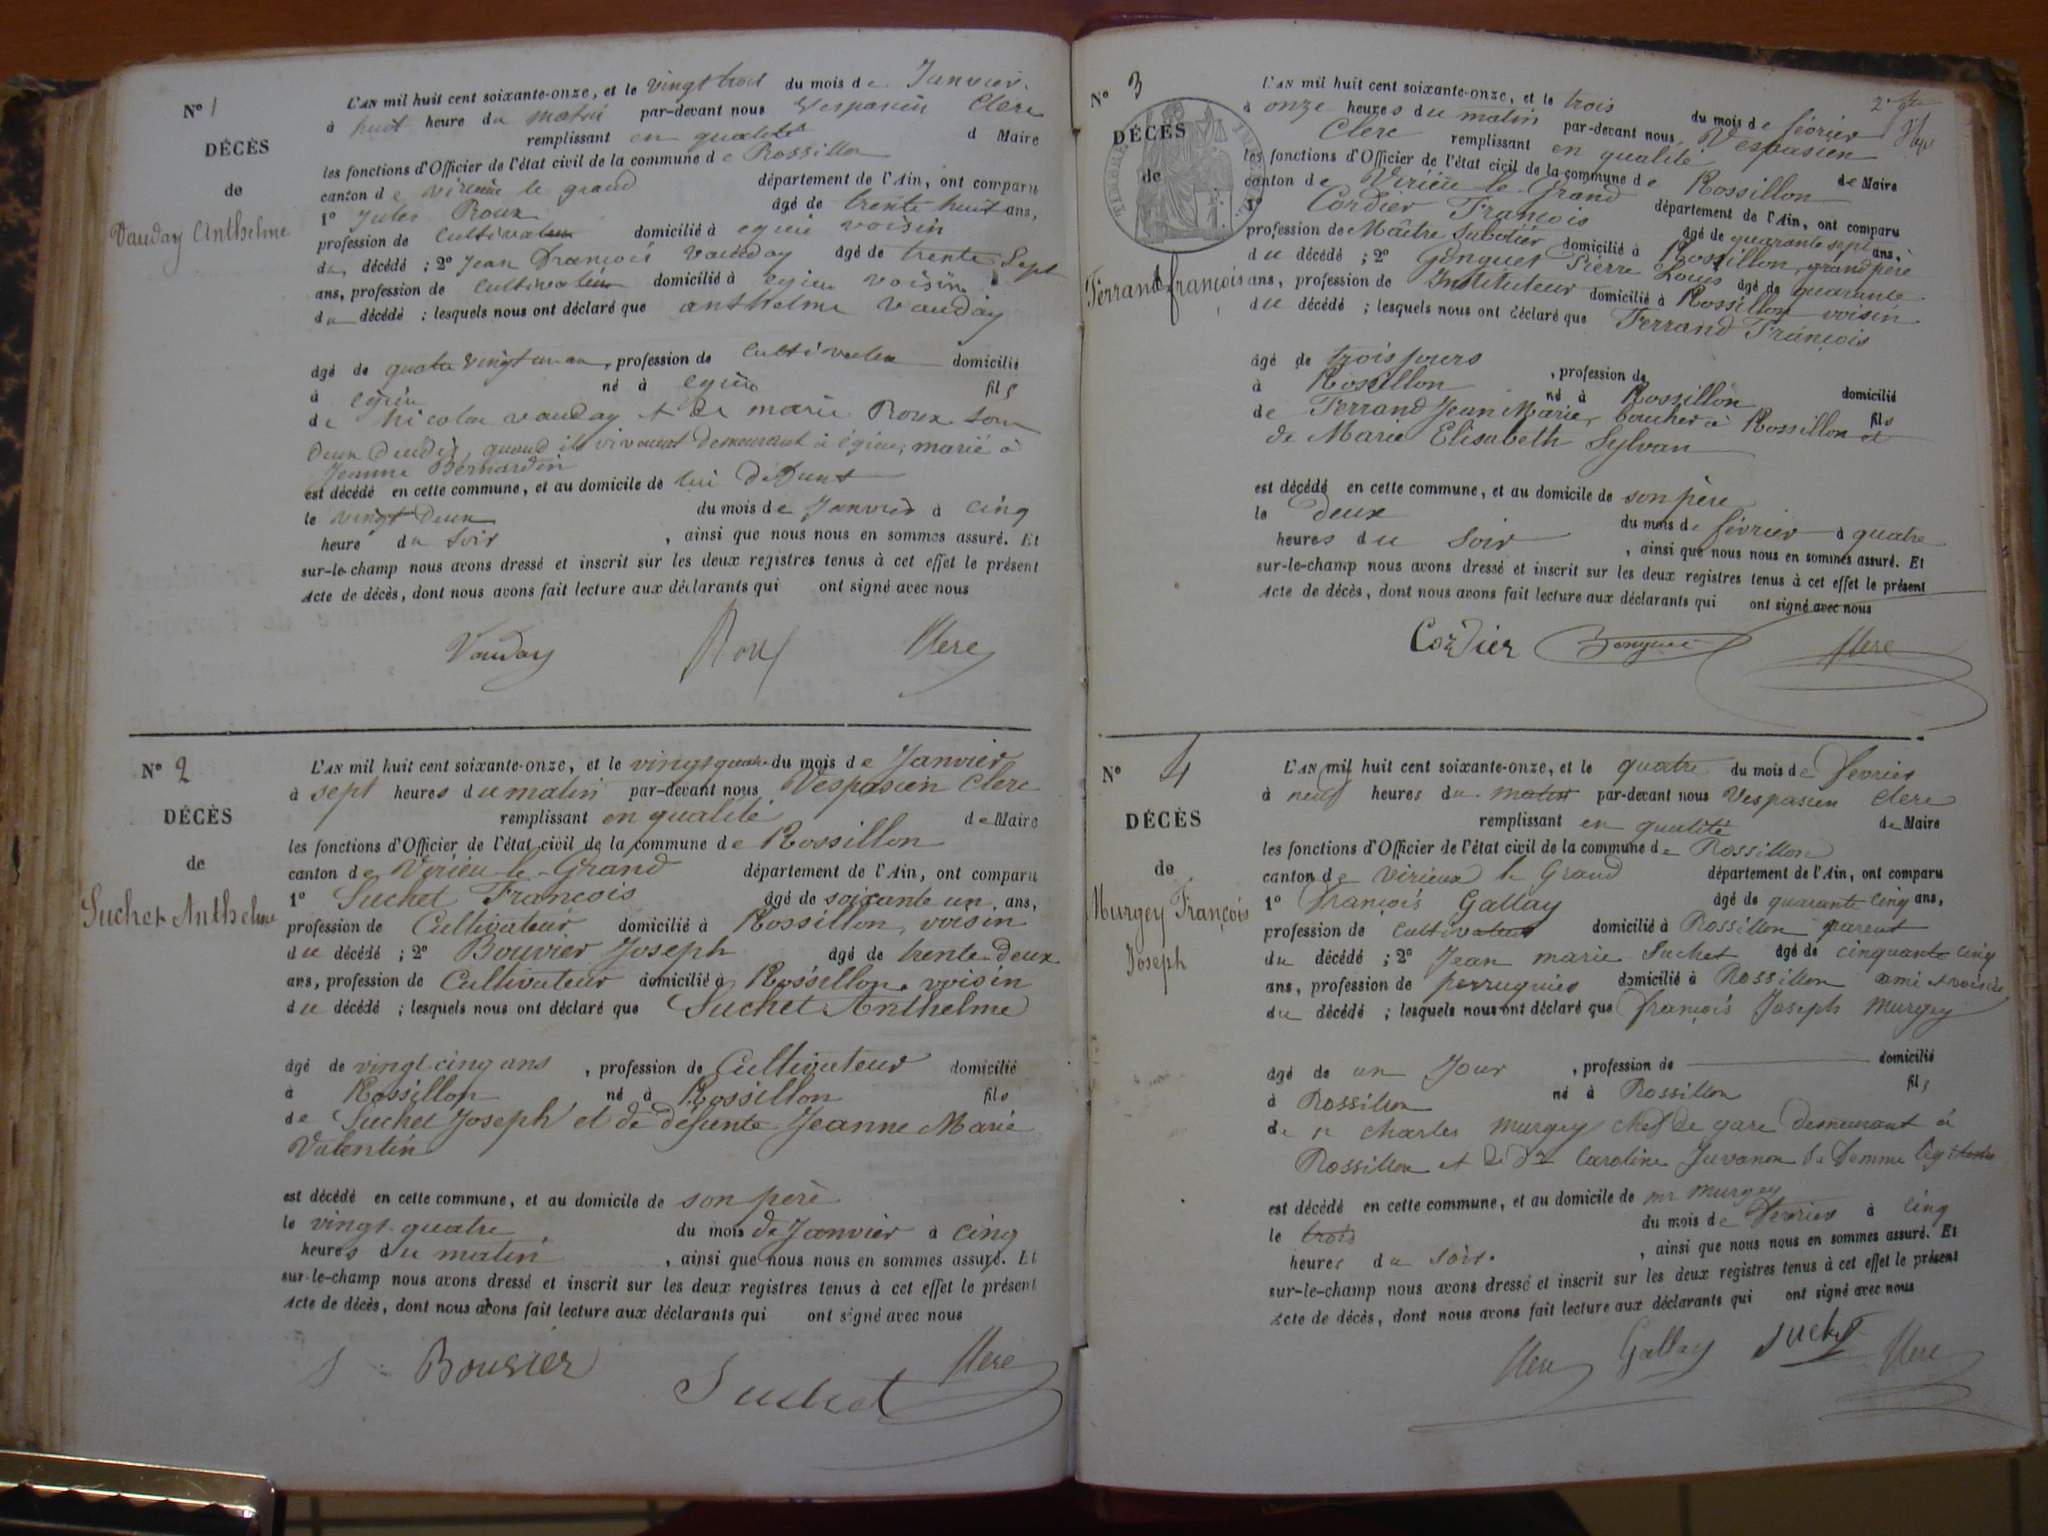 N° 1
DÉCÈS
de
Vauday Anthelme
L'AN mil huit cent soixante-onze, et le vingt trois du mois de Janvier
à huit heure du matin par-devant nous Vespasien Clerc
remplissant en qualité d Maire
les fonctions d'Officier de l'état civil de la commune de Rossillon
canton de virieu le grand département de l'Ain, ont comparu
1° Jules Roux âgé de trente huit ans,
profession de cultivateur domicilié à egieu voisin
du décédé ; 2° Jean François Vauday âgé de trente sept
ans, profession de cultivateur domicilié à egieu voisin
du décédé ; lesquels nous ont déclaré que anthelme vauday
âgé de quatre vingt un an, profession de cultivateur domicilié
à egieu né à egieu fils
de nicolas vauday et de marie Roux son
deux décédés, quand ils vivaient demeurant à égieu, marié à
Jeanne Bernardin
est décédé en cette commune, et au domicile de lui défunt
le vingt deux du mois de Janvier à cinq
heure du soir , ainsi que nous nous en sommes assuré. Et
sur-le-champ nous avons dressé et inscrit sur les deux registres tenus à cet effet le présent
Acte de décès, dont nous avons fait lecture aux déclarants qui ont signé avec nous
Vauday Roux Clerc
N° 2
DÉCÈS
de
Suchet Anthelme
L'AN mil huit cent soixante-onze, et le vingt quatre du mois de Janvier
à sept heures du matin par-devant nous Vespasien Clerc
remplissant en qualité de Maire
les fonctions d'Officier de l'état civil de la commune de Rossillon
canton de Virieu-le-Grand département de l'Ain, ont comparu
1° Suchet François âgé de soixante un ans,
profession de Cultivateur domicilié à Rossillon, voisin
du décédé ; 2° Bouvier Joseph âgé de trente-deux
ans, profession de Cultivateur domicilié à Rossillon, voisin
du décédé ; lesquels nous ont déclaré que Suchet Anthelme
âgé de vingt-cinq ans , profession de Cultivateur domicilié
à Rossillon né à Rossillon fils
de Suchet Joseph et de défunte Jeanne Marie
Valentin
est décédé en cette commune, et au domicile de son père
le vingt-quatre du mois de Janvier à cinq
heures du matin , ainsi que nous nous en sommes assuré. Et
sur-le-champ nous avons dressé et inscrit sur les deux registres tenus à cet effet le présent
Acte de décès, dont nous avons fait lecture aux déclarants qui ont signé avec nous
Bouvier Suchet Clerc
N° 3
DÉCÈS
de
Ferrand françois
L'AN mil huit cent soixante-onze, et le trois du mois de février
à onze heures du matin par-devant nous Vespasien
Clerc remplissant en qualité de Maire
les fonctions d'Officier de l'état civil de la commune de Rossillon
canton de Virieu le Grand département de l'Ain, ont comparu
1° Cordier François âgé de quarante sept ans,
profession de Maître Sabotier domicilié à Rossillon, grand père
du décédé ; 2° Ginguet Pierre Louis âgé de quarante
ans, profession de Instituteur domicilié à Rossillon voisin
du décédé ; lesquels nous ont déclaré que Ferrand François
âgé de trois jours , profession de domicilié
à Rossillon né à Rossillon fils
de Ferrand Jean Marie, boucher à Rossillon et
de Marie Elisabeth Sylvan
est décédé en cette commune, et au domicile de son père
le deux du mois de février à quatre
heures du soir , ainsi que nous nous en sommes assuré. Et
sur-le-champ nous avons dressé et inscrit sur les deux registres tenus à cet effet le présent
Acte de décès, dont nous avons fait lecture aux déclarants qui ont signé avec nous
Cordier Clerc
N° 4
DÉCÈS
de
Murgey François
Joseph
L'AN mil huit cent soixante-onze, et le quatre du mois de Fevrier
à neuf heures du matin par-devant nous Vespasien Clerc
remplissant en qualité de Maire
les fonctions d'Officier de l'état civil de la commune de Rossillon
canton de virieux le Grand département de l'Ain, ont comparu
1° François Gallay âgé de quarante cinq ans,
profession de cultivateur domicilié à Rossillon parent
du décédé ; 2° Jean marie Suchet âgé de cinquante cinq
ans, profession de perruquier domicilié à Rossillon ami et voisin
du décédé ; lesquels nous ont déclaré que françois Joseph Murgey
âgé de un Jour , profession de domicilié
à Rossillon né à Rossillon fils
de sr Charles Murgey chef de gare demeurant à
Rossillon et de dme Caroline Juvanon sa femme légitime
est décédé en cette commune, et au domicile de mr Murgey
le trois du mois de Fevrier à cinq
heures du soir. , ainsi que nous nous en sommes assuré. Et
sur-le-champ nous avons dressé et inscrit sur les deux registres tenus à cet effet le présent
Acte de décès, dont nous avons fait lecture aux déclarants qui ont signé avec nous
Clerc Gallay Suchet Clerc